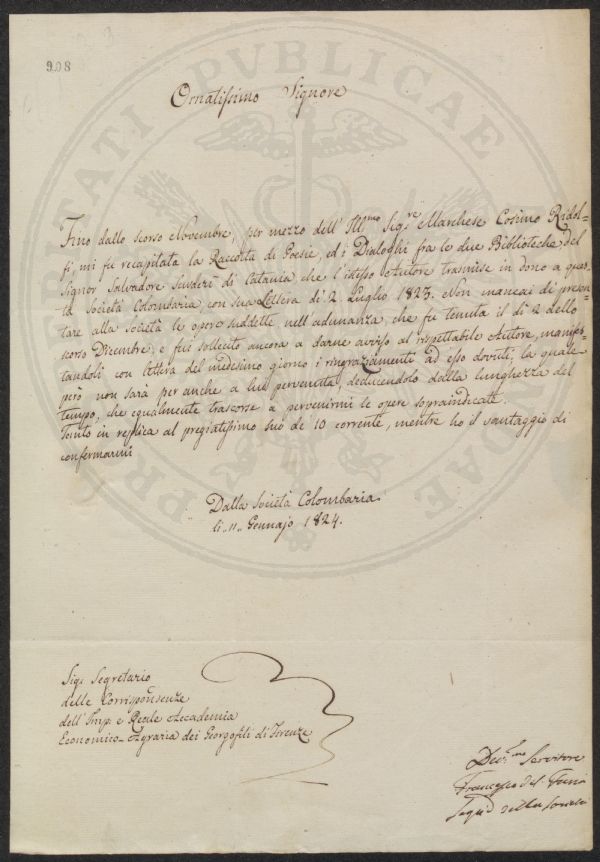 908
Ornatissimo Signore
Fino dallo scorso Novembre, per mezzo dell' Ill.mo Sig.re Marchese Cosimo Ridol-
fi, mi fu recapitata la Raccolta di Poesie, ed i Dialoghi fra le due Biblioteche del
Signor Salvadore Scuderi di Catania che l'istesso Autore trasmise in dono a ques-
ta Società Colombaria, con sua Lettera de' 2. Luglio 1823. Non mancai di presen-
tare alla Società le opere suddette nell'adunanza, che fu tenuta il dì 2 dello
scorso Dicembre, e fui sollecito ancora a darne avviso al rispettabile Autore, manifes-
tandoli con lettera del medesimo giorno i ringraziamenti ad esso dovuti, la quale
però non sarà per anche a lui pervenuta, deducendolo dalla lunghezza del
tempo, che egualmente trascorse a pervenirmi le opere sopraindicate.
Tanto in replica al pregiatissimo suo de' 10 corrente, mentre ho il vantaggio di
confermarmi
Dalla Società Colombaria
li 11 Gennajo 1824.
Sig.r Segretario
delle Corrispondenze
dell'Imp. e Reale Accademia
Economico-Agraria dei Georgofili di Firenze
Dev.mo Servitore
Francesco del Furia
Seg.rio della Società
PVBLICAE